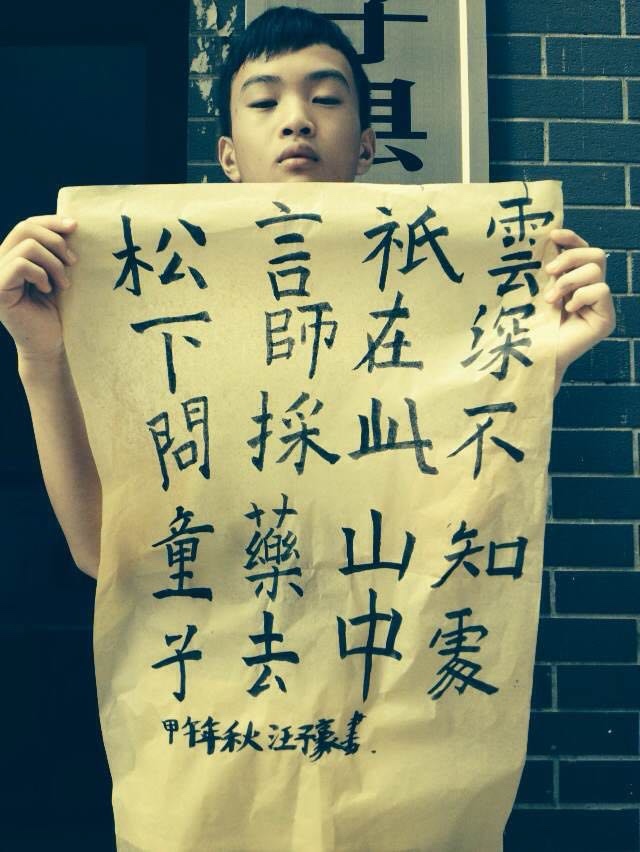 松下問童子
言師採藥去
祇在此山中
雲深不知處
甲午年秋汪子豪書